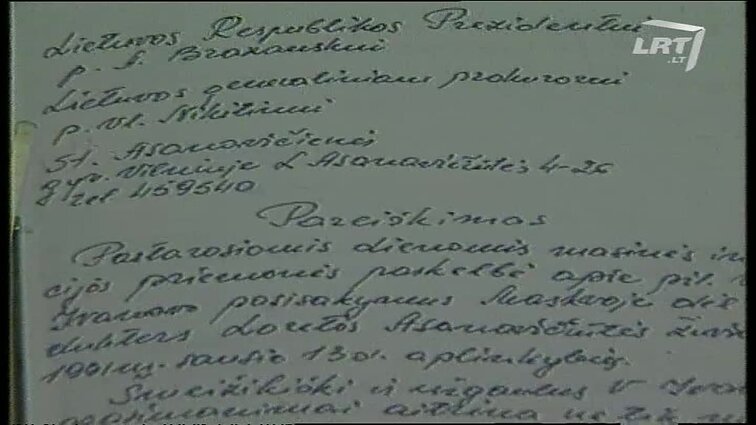 LRT
.LT
Lietuvos Respublikos Prezidentui
p. A. Brazauskui
Lietuvos generaliniam prokurorui
p. Vl. Nikitinui
St. Asanavičienės
gyv. Vilniuje L Asanavičiūtės 4-26
tel 459540
Pareiškimas
Pastarosiomis dienomis masinės in
cijos priemonės paskelbė apie pil. V
Ivanovo pasisakymus Maskvoje dėl
dukters Loretos Asanavičiūtės žuvi
1991 m. sausio 13 d. aplinkybių.
Smeižikiški ir užgaulus V Ivan
prasimanimai aitrina ne tik m